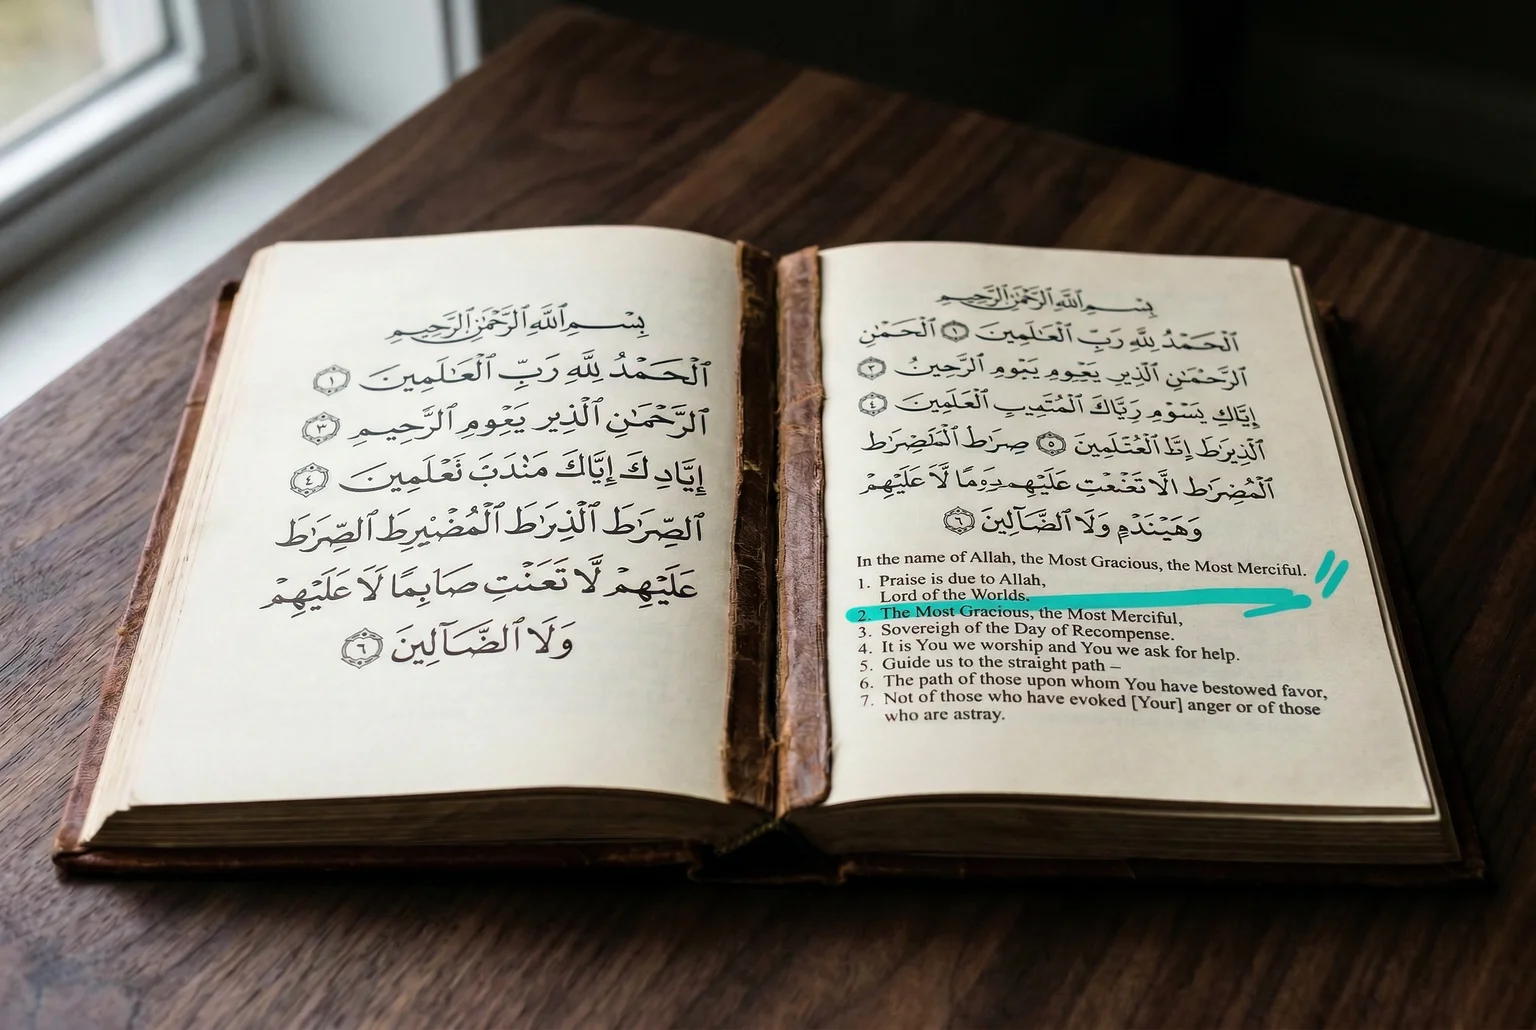 بِسْمِ ٱللَّهِ ٱلرَّحْمَٰنِ ٱلرَّحِيمِ
ٱلْحَمْدُ لِلَّهِ رَبِّ ٱلْعَـٰلَمِينَ ١
ٱلرَّحْمَـٰنِ ٱلَّذِیرِ یَعْومِ ٱلرَّحِيمِ ٣
إِيَّادِكَ إِيَّاكَ مَنْدَبَ نَعْلَمِينَ ٤
ٱلصِّرَٰطَ ٱلَّذِرَٰطَ ٱلْمُضْيرِطَ ٱلصِّرَٰطَ
عَلَيْهِمْ لَّا تَعَنْتِ صَابِمًا لَا عَلَيْهِمْ
وَلَا ٱلضَّآلِّينَ ٦
بِسْمِ ٱللَّهِ ٱلرَّحْمَٰنِ ٱلرَّحِيمِ
ٱلْحَمْدُ لِلَّهِ رَبِّ ٱلْعَـٰلَمِينَ ١ ٱلْحَمْـٰنِ
ٱلرَّحْمَـٰنِ ٱلَّذِیرِ یَعْومِ یَبْومِ ٱلرَّحِینُ ٢
إِيَّاكَ یَسْوْمِ رِيَّاكَ ٱلْعَلَمِينَ ٤
ٱلَّذِیرَطَ إِنَّا ٱلْعُتَلَمِینَ ٥ صِرَٰطَ ٱلْمَضِرَٰطَ
ٱلْمُضِرَٰطَ الَّا تَعْنَعْتِ عَلَيْهِمْ دِومًا لَّا عَلَيْهِمْ
وَهَیْنَدْمٍ وَلَا ٱلضَّآلِّينَ ٦
In the name of Allah, the Most Gracious, the Most Merciful.
1. Praise is due to Allah,
Lord of the Worlds.
2. The Most Gracious, the Most Merciful,
3. Sovereigh of the Day of Recompense.
4. It is You we worship and You we ask for help.
5. Guide us to the straight path –
6. The path of those upon whom You have bestowed favor,
7. Not of those who have evoked [Your] anger or of those
who are astray.